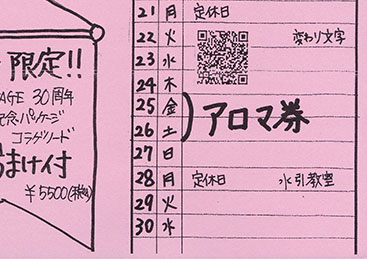 限定!!
AGE 30周年
記念パッケージ
コラゲリード
おまけ付
¥5500(税抜)
21 月 定休日
22 火 変わり文字
23 水
24 木
25 金
アロマ券
26 土
27 日
28 月 定休日 水引教室
29 火
30 水